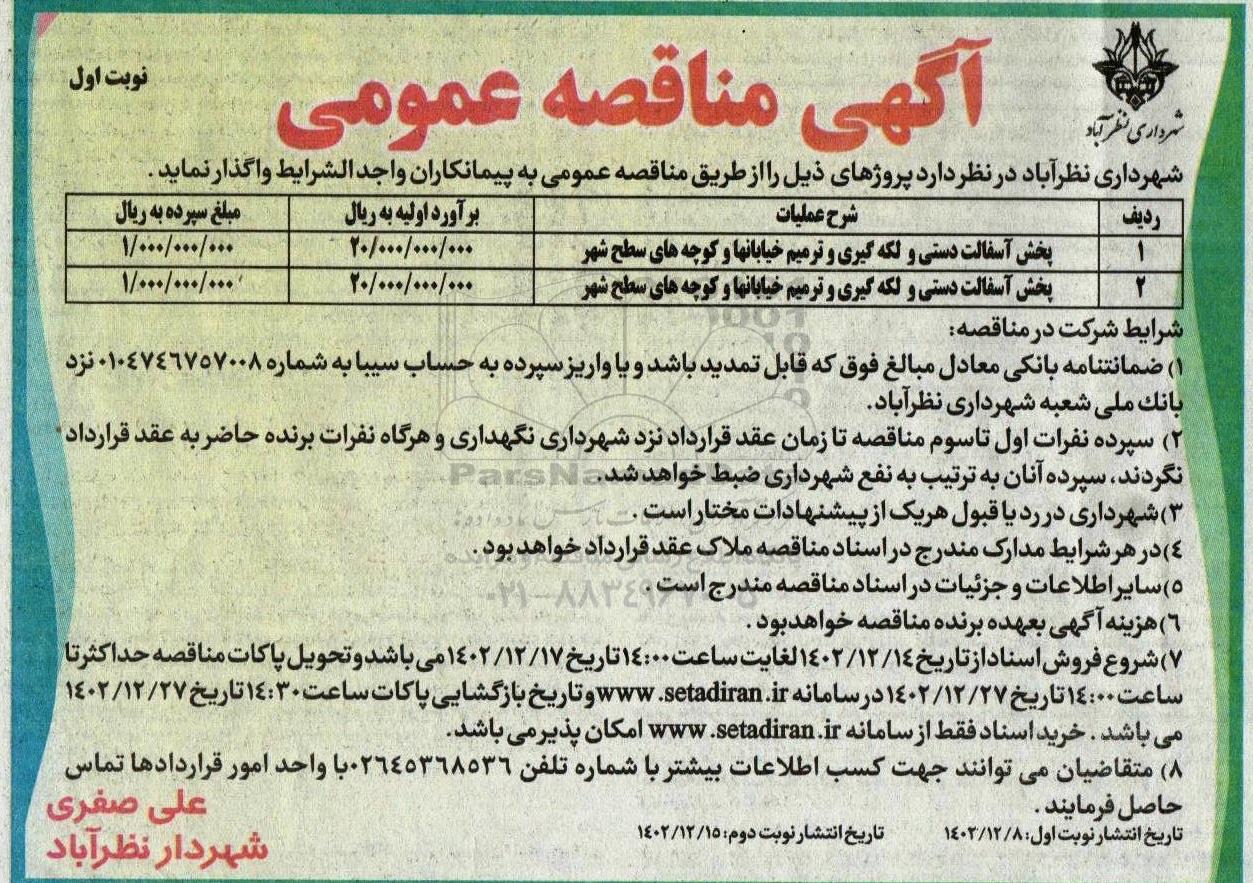 شهرداری نظرآباد
آگهی مناقصه عمومی
نوبت اول
شهرداری نظرآباد در نظر دارد پروژهای ذیل را از طریق مناقصه عمومی به پیمانکاران واجد الشرایط واگذار نماید .
ردیف شرح عملیات برآورد اولیه به ریال مبلغ سپرده به ریال
۱ پخش آسفالت دستی و لکه گیری و ترمیم خیابانها و کوچه های سطح شهر ۲۰/۰۰۰/۰۰۰/۰۰۰ ۱/۰۰۰/۰۰۰/۰۰۰
۲ پخش آسفالت دستی و لکه گیری و ترمیم خیابانها و کوچه های سطح شهر ۲۰/۰۰۰/۰۰۰/۰۰۰ ۱/۰۰۰/۰۰۰/۰۰۰
شرایط شرکت در مناقصه:
۱) ضمانتنامه بانکی معادل مبالغ فوق که قابل تمدید باشد و یا واریز سپرده به حساب سیبا به شماره ۰۱۰۴۷۴۶۷۵۷۰۰۸ نزد
بانك ملی شعبه شهرداری نظرآباد.
۲) سپرده نفرات اول تاسوم مناقصه تا زمان عقد قرارداد نزد شهرداری نگهداری و هرگاه نفرات برنده حاضر به عقد قرارداد
نگردند، سپرده آنان به ترتیب به نفع شهرداری ضبط خواهد شد.
۳) شهرداری در رد یا قبول هریک از پیشنهادات مختار است .
۴) در هر شرایط مدارک مندرج در اسناد مناقصه ملاک عقد قرارداد خواهد بود .
۵) سایر اطلاعات و جزئیات در اسناد مناقصه مندرج است .
۶) هزینه آگهی بعهده برنده مناقصه خواهدبود .
۷) شروع فروش اسناد از تاریخ ۱۴۰۲/۱۲/۱۴ لغایت ساعت ۱۴:۰۰ تاریخ ۱۴۰۲/۱۲/۱۷ می باشد و تحویل پاکات مناقصه حداکثر تا
ساعت ۱۴:۰۰ تاریخ ۱۴۰۲/۱۲/۲۷ در سامانه www.setadiran.ir و تاریخ بازگشایی پاکات ساعت ۱۴:۳۰ تاریخ ۱۴۰۲/۱۲/۲۷
می باشد . خرید اسناد فقط از سامانه www.setadiran.ir امکان پذیر می باشد.
۸) متقاضیان می توانند جهت کسب اطلاعات بیشتر با شماره تلفن ۰۲۶۴۵۳۶۸۵۳۶ با واحد امور قراردادها تماس
حاصل فرمایند .
تاریخ انتشار نوبت اول: ۱۴۰۳/۱۲/۸ تاریخ انتشار نوبت دوم: ۱۴۰۲/۱۲/۱۵
علی صفری
شهردار نظرآباد